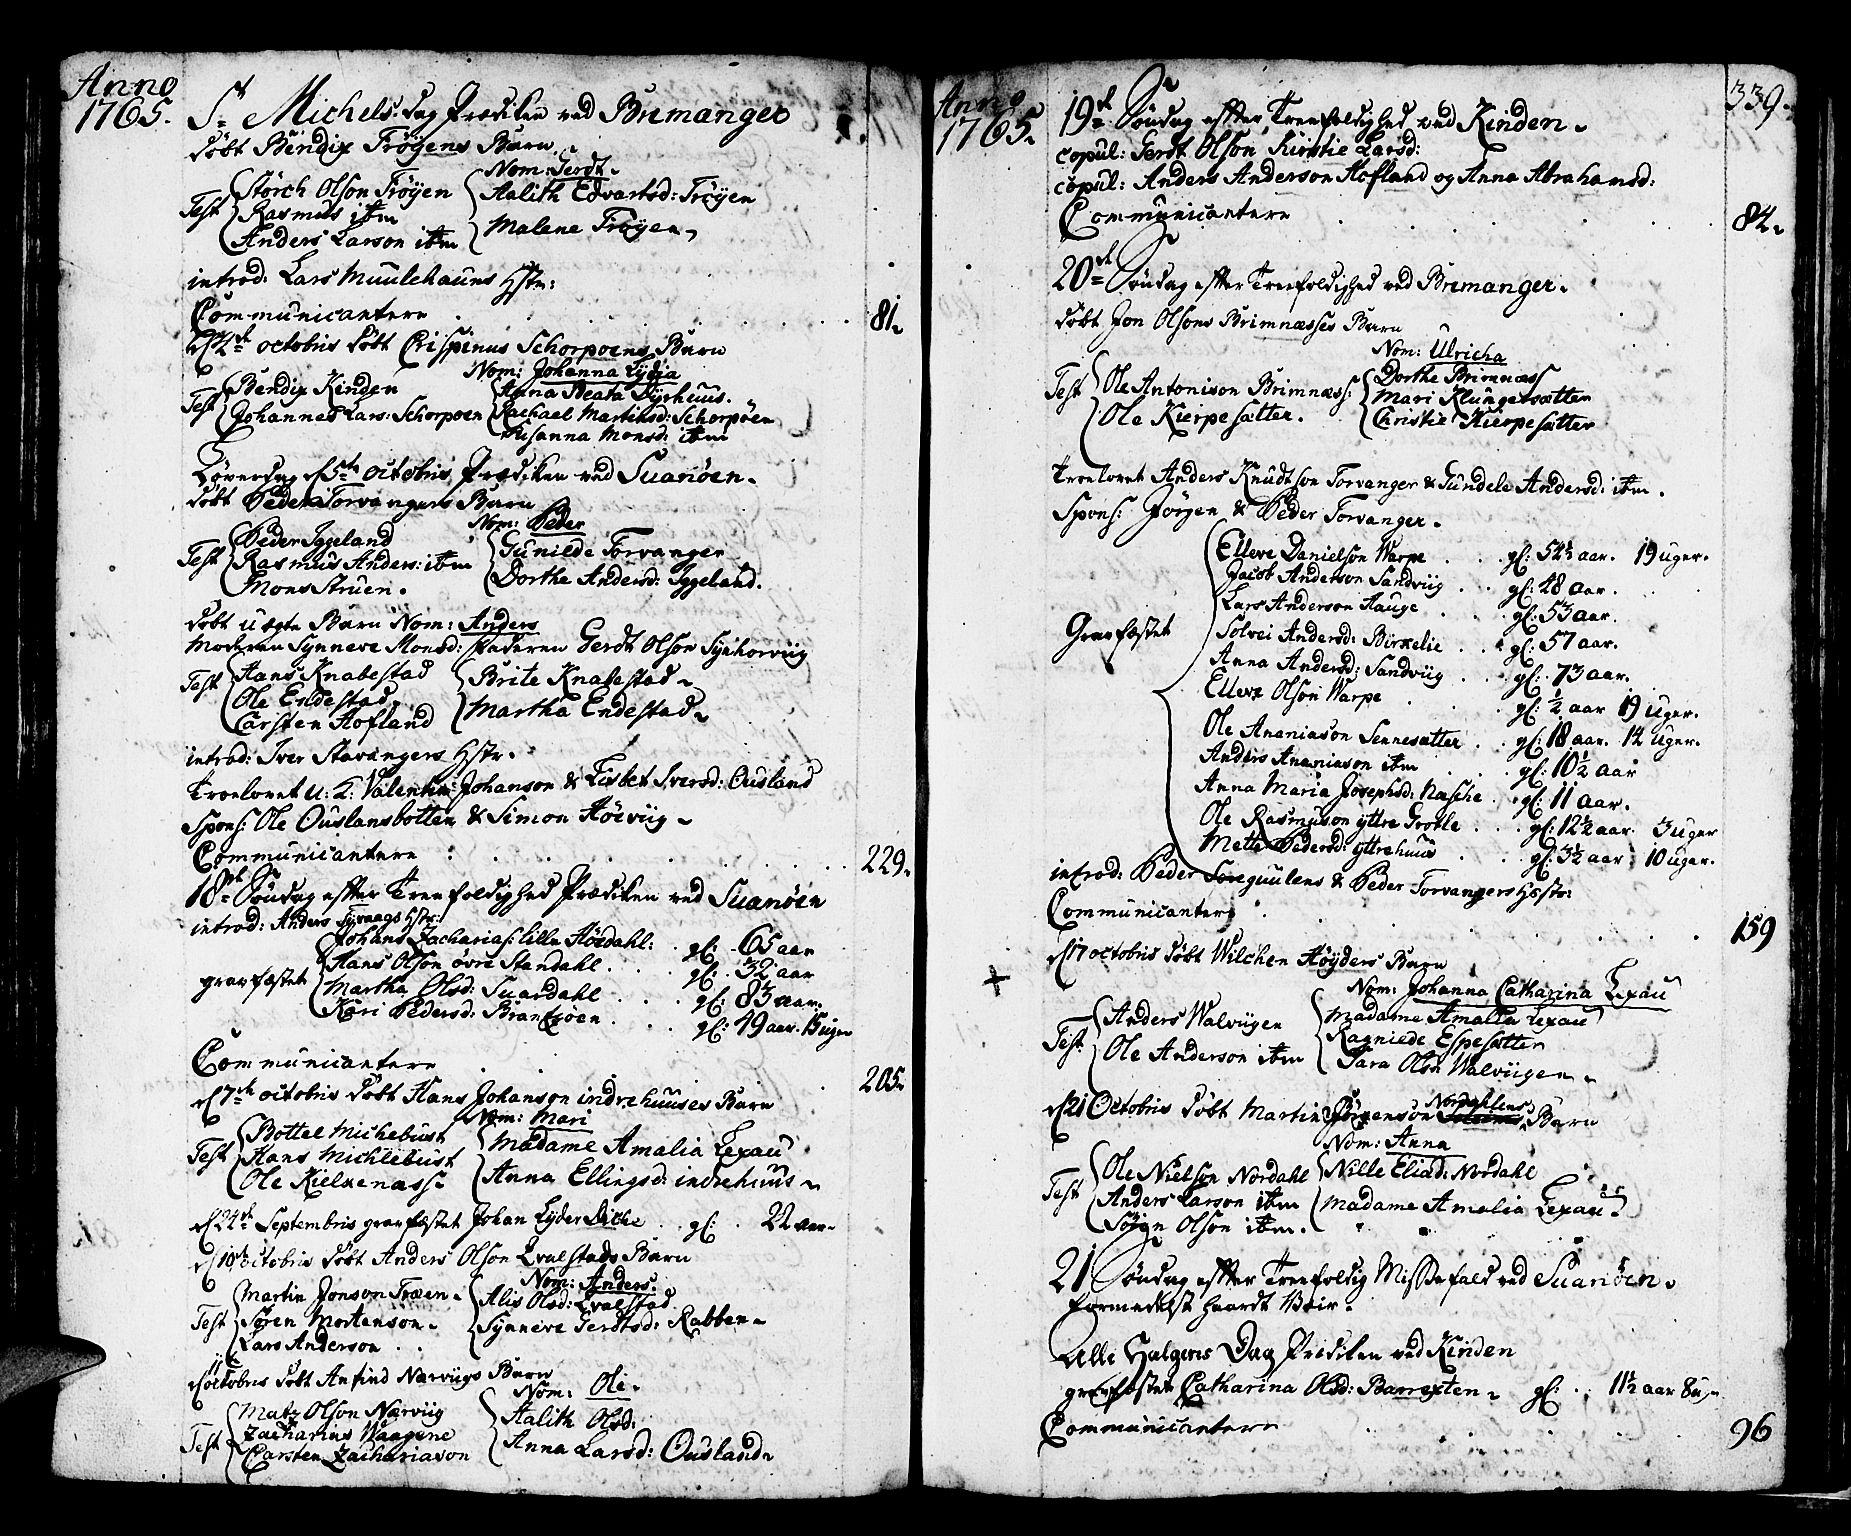 Anno
1765.
St Michels dag Prædiken ved Bremanger
døbt Bendix Frøyens Barn
Nom: Gerdt
Test Storch Olson Frøyen
Rasmus ibm
Anders Larson ibm
Aalith Edvartsd: Frøyen
Malene Frøyen
introd: Lars Muulehauns Hstr:
Communicantere 81
d 4de octobris døbt Crispinus Schorpoens Barn
Nom: Johanna Lydia
Test Bendix Kinden
Johannes Lars: Schorpoen
Anna Beata Dyrhuus.
Rachael Martinsd: Schorpøen
Susanna Monsd: ibm
Løverdag d 5te octobris Prædiken ved Suanøen
døbt Peder Torvangers Barn
Nom: Peder
Test Peder Iggeland
Rasmus Anders: ibm
Mons Struen.
Gunilde Torvanger
Dorthe Andersd: Iggeland.
døbt uægte Barn Nom: Anders
Moderen Synneve Monsd: faderen Gerdt Olson Syxhorviig
Test Hans Knabestad
Ole Endestad
Carsten Hofland
Brite Knabestad
Martha Endestad
introd: Iver Stavangers Hstr.
Troelovet u: k: Valentin Johanson & Lisbet Iversd: Ousland
Spons: Ole Ouslansbotten & Simon Høeviig
Communicantere 229.
18de Søndag effter Treefoldighed Prædiken ved Suanøen
introd: Anders Tyvaags Hstr:
gravfæstet Johans Zacharias: lille Høedahl: gl: 65 aar
Hans Olson øvre Standahl gl: 32 aar
Martha Olsd: Suardahl gl: 83 aar.
Kari Pedersd: Brandsøen gl: 49 aar. 15 uger
Communicantere 205
d 7de octobris døbt Hans Johanson indrehuuses Barn
Nom: Mari
Test Bottel Michlebust
Hans Michlebust
Ole Kielkenæss
Madame Amalia Lexau
Anna Ellingsd: indrehuus
d 24de Septembris gravfæstet Johan Lyder Diche gl: 22 aar
d 10de octobris døbt Anders Olson Qvalstads Barn
Nom: Anders:
Test Martin Jonson Træen
Søren Mortenson
Lars Anderson
Alis Olsd: Qvalstad
Synneve Gerdtsd: Rabben
d 11te octobris døbt Anfind Nærviigs Barn
Nom: Ole
Test Matz Olson Nærviig
Zacharias Waagene
Carsten Zachariason
Aalith Olsd:
Anna Larsd: Ousland
Anno
1765.
339.
19de Søndag effter Treefoldighed ved Kinden
copul: Gerdt Olson Kirstie Larsd:
copul: Anders Anderson Hofland og Anna Abrahamsd:
Communicantere 84
20de Søndag effter Treefoldighed ved Bremanger
døbt Jon Olsons Brimnæsses Barn
Nom: Ulricha
Test Ole Antonison Brimnæss:
Ole Kierpesætter.
Dorthe Brimnæss
Mari Klungersætter
Christie Kierpesætter
troelovet Anders Knudtson Torvanger & Gundele Andersd: ibm.
Spons: Jørgen & Peder Torvanger.
Gravfæstet
Elleve Danielson Warpe gl: 54½ aar. 19 uger.
Jacob Anderson Sandviig gl: 48 aar.
Lars Anderson Hauge gl: 53 aar.
Solvei Andersd: Birkelie gl: 57 aar.
Anna Andersd: Sandviig gl: 73 aar.
Elleve Olson Warpe gl: ½ aar 19 uger.
Ole Ananiason Sennesætter gl: 18 aar. 14 uger.
Anders Ananiason ibm gl: 10½ aar
Anna Maria Josephsd: Nasche gl: 11 aar.
Ole Rasmuson yttre Grotle gl: 12½ aar. 3 uger
Mette Pedersd: yttrehuus gl: 3½ aar 10 uger.
introd: Peder Soreguulens & Peder Torvangers Hstr:
Communicantere 159
d 17 octobris døbt Wilchen Høyders Barn
Nom: Johanna Catharina Lexau
Test: Anders Walviigen
Ole Anderson ibm
Madame Amalia Lexau
Ragniede Espesætter
Sara Olsd: Walviigen
d 21 Octobris døbt Martin Jørgenson Nordahlens Barn
Nom: Anna
Test Ole Nielson Nordahl
Anders Larson ibm
Søgn Olson ibm.
Nille Eliad: Nordahl
Madame Amalia Lexau
21 Søndag effter Treefoldig Missefald ved Suanøen
formedelst haardt Veir
Alle Helgens Dag Prædiken ved Kinden
gravfæstet Catharina Olsd: Barrexten gl: 11½ aar 8 ug
Communicantere 96